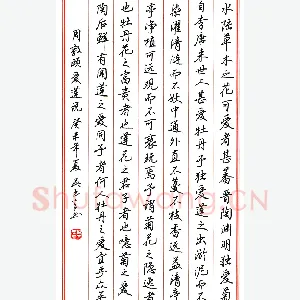 水陆草木之花可爱者甚蕃晋陶渊明独爱菊
自李唐来世人甚爱牡丹予独爱莲之出淤泥而不
染濯清涟而不妖中通外直不蔓不枝香远益清亭
亭净植可远观而不可亵玩焉予谓菊花之隐逸者
也牡丹花之富贵者也莲花之君子者也噫菊之爱
陶后鲜有闻莲之爱同予者何人牡丹之爱宜乎众矣
周敦颐爱莲说 癸未年夏
Shufawang.CN